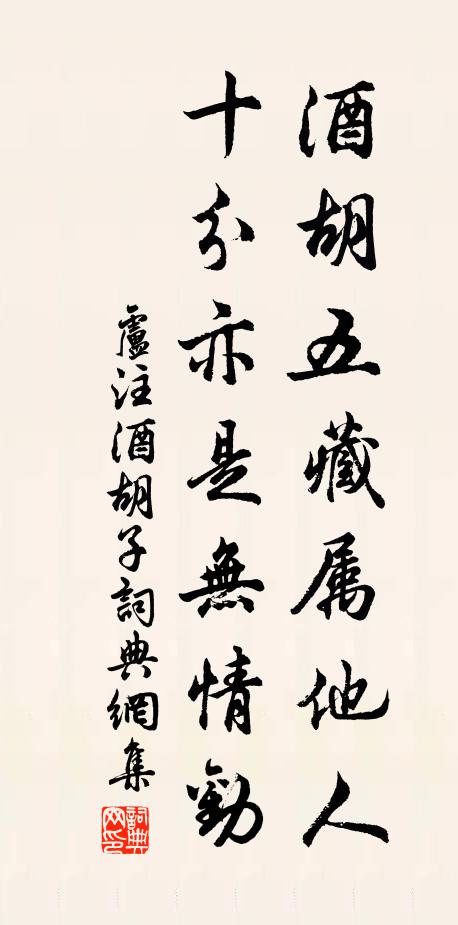 酒胡五藏属他人
十分亦是無情勸
盧注酒胡子詞典網集
詞典网印